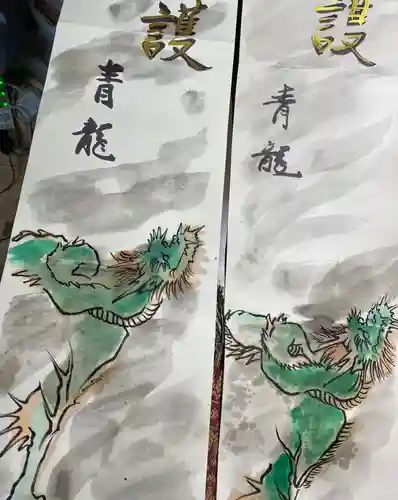 護
青龍
護
青龍